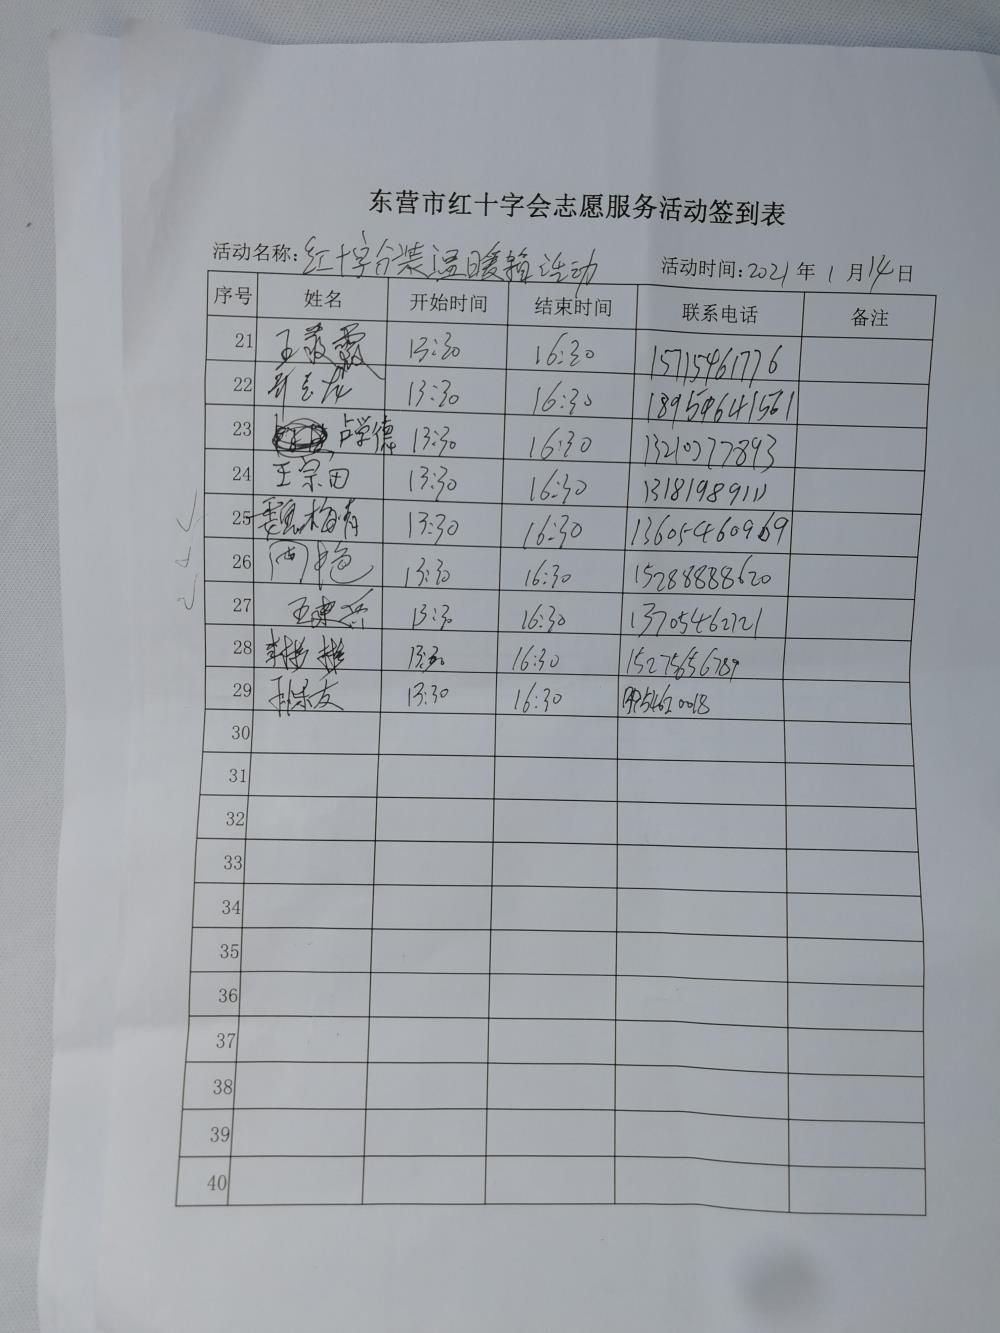 东营市红十字会志愿服务活动签到表
活动名称：红十字分装温暖箱活动 活动时间：2021年1月14日
序号 姓名 开始时间 结束时间 联系电话 备注
21 王霞 13:30 16:30 15715461776
22 13:30 16:30 18954641561
23 占学德 13:30 16:30 13210277893
24 王宗田 13:30 16:30 13181989111
25 魏梅青 13:30 16:30 13605460969
26 13:30 16:30 15288888620
27 13:30 16:30 13705462721
28 13:30 16:30 15275656789
29 友 13:30 16:30
30
31
32
33
34
35
36
37
38
39
40